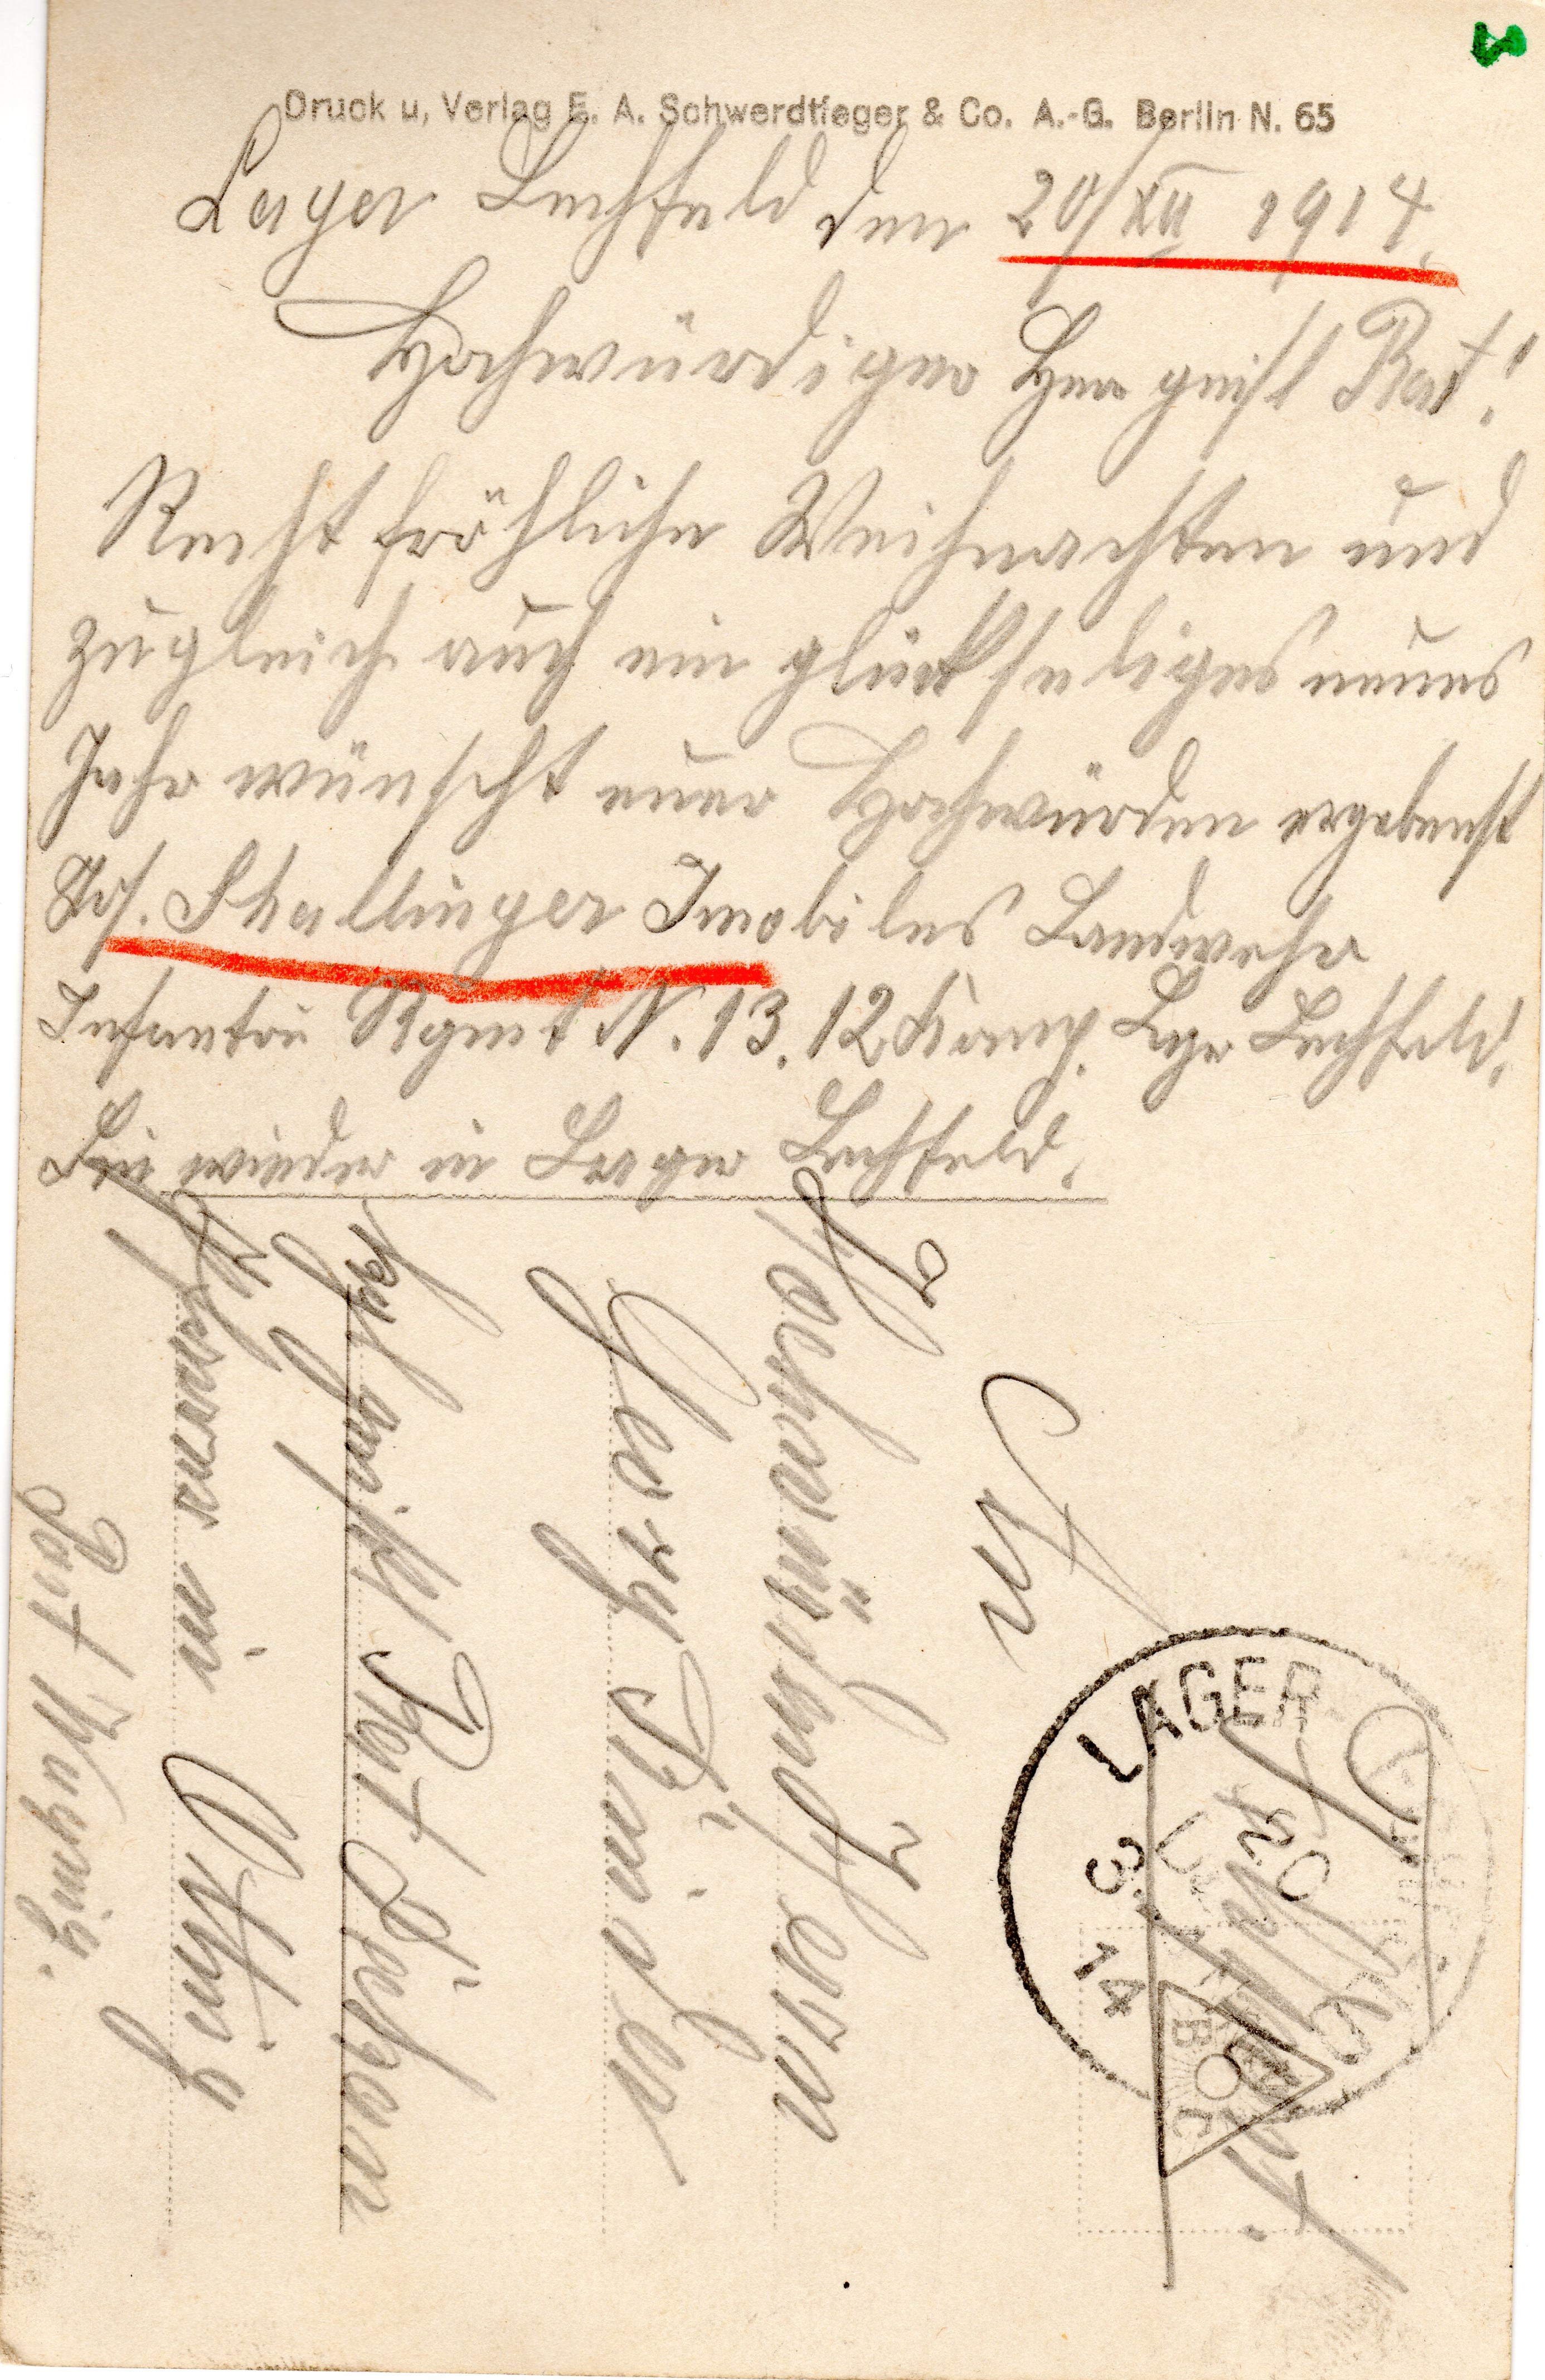 Druck u. Verlag E. A. Schwerdtfeger & Co. A.-G. Berlin N. 65
Lager Lechfeld den 20/XII 1914.
Hochwürdiger Herr geistl Rat!
Recht fröhliche Weihnachten und
zugleich auch ein glückseliges neues
Jahr wünscht euer Hochwürden ergebenst
Jos. Stallinger Imobiles Landwehr
Infantrie Rgmt N. 13. 12 Komp. Lager Lechfeld.
Bin wieder in Lager Lechfeld.
Feldpost.
LAGER
14
An
Hochwürden Herrn
Georg Binder
geistl Rat
Pfarrer in Atting
Post